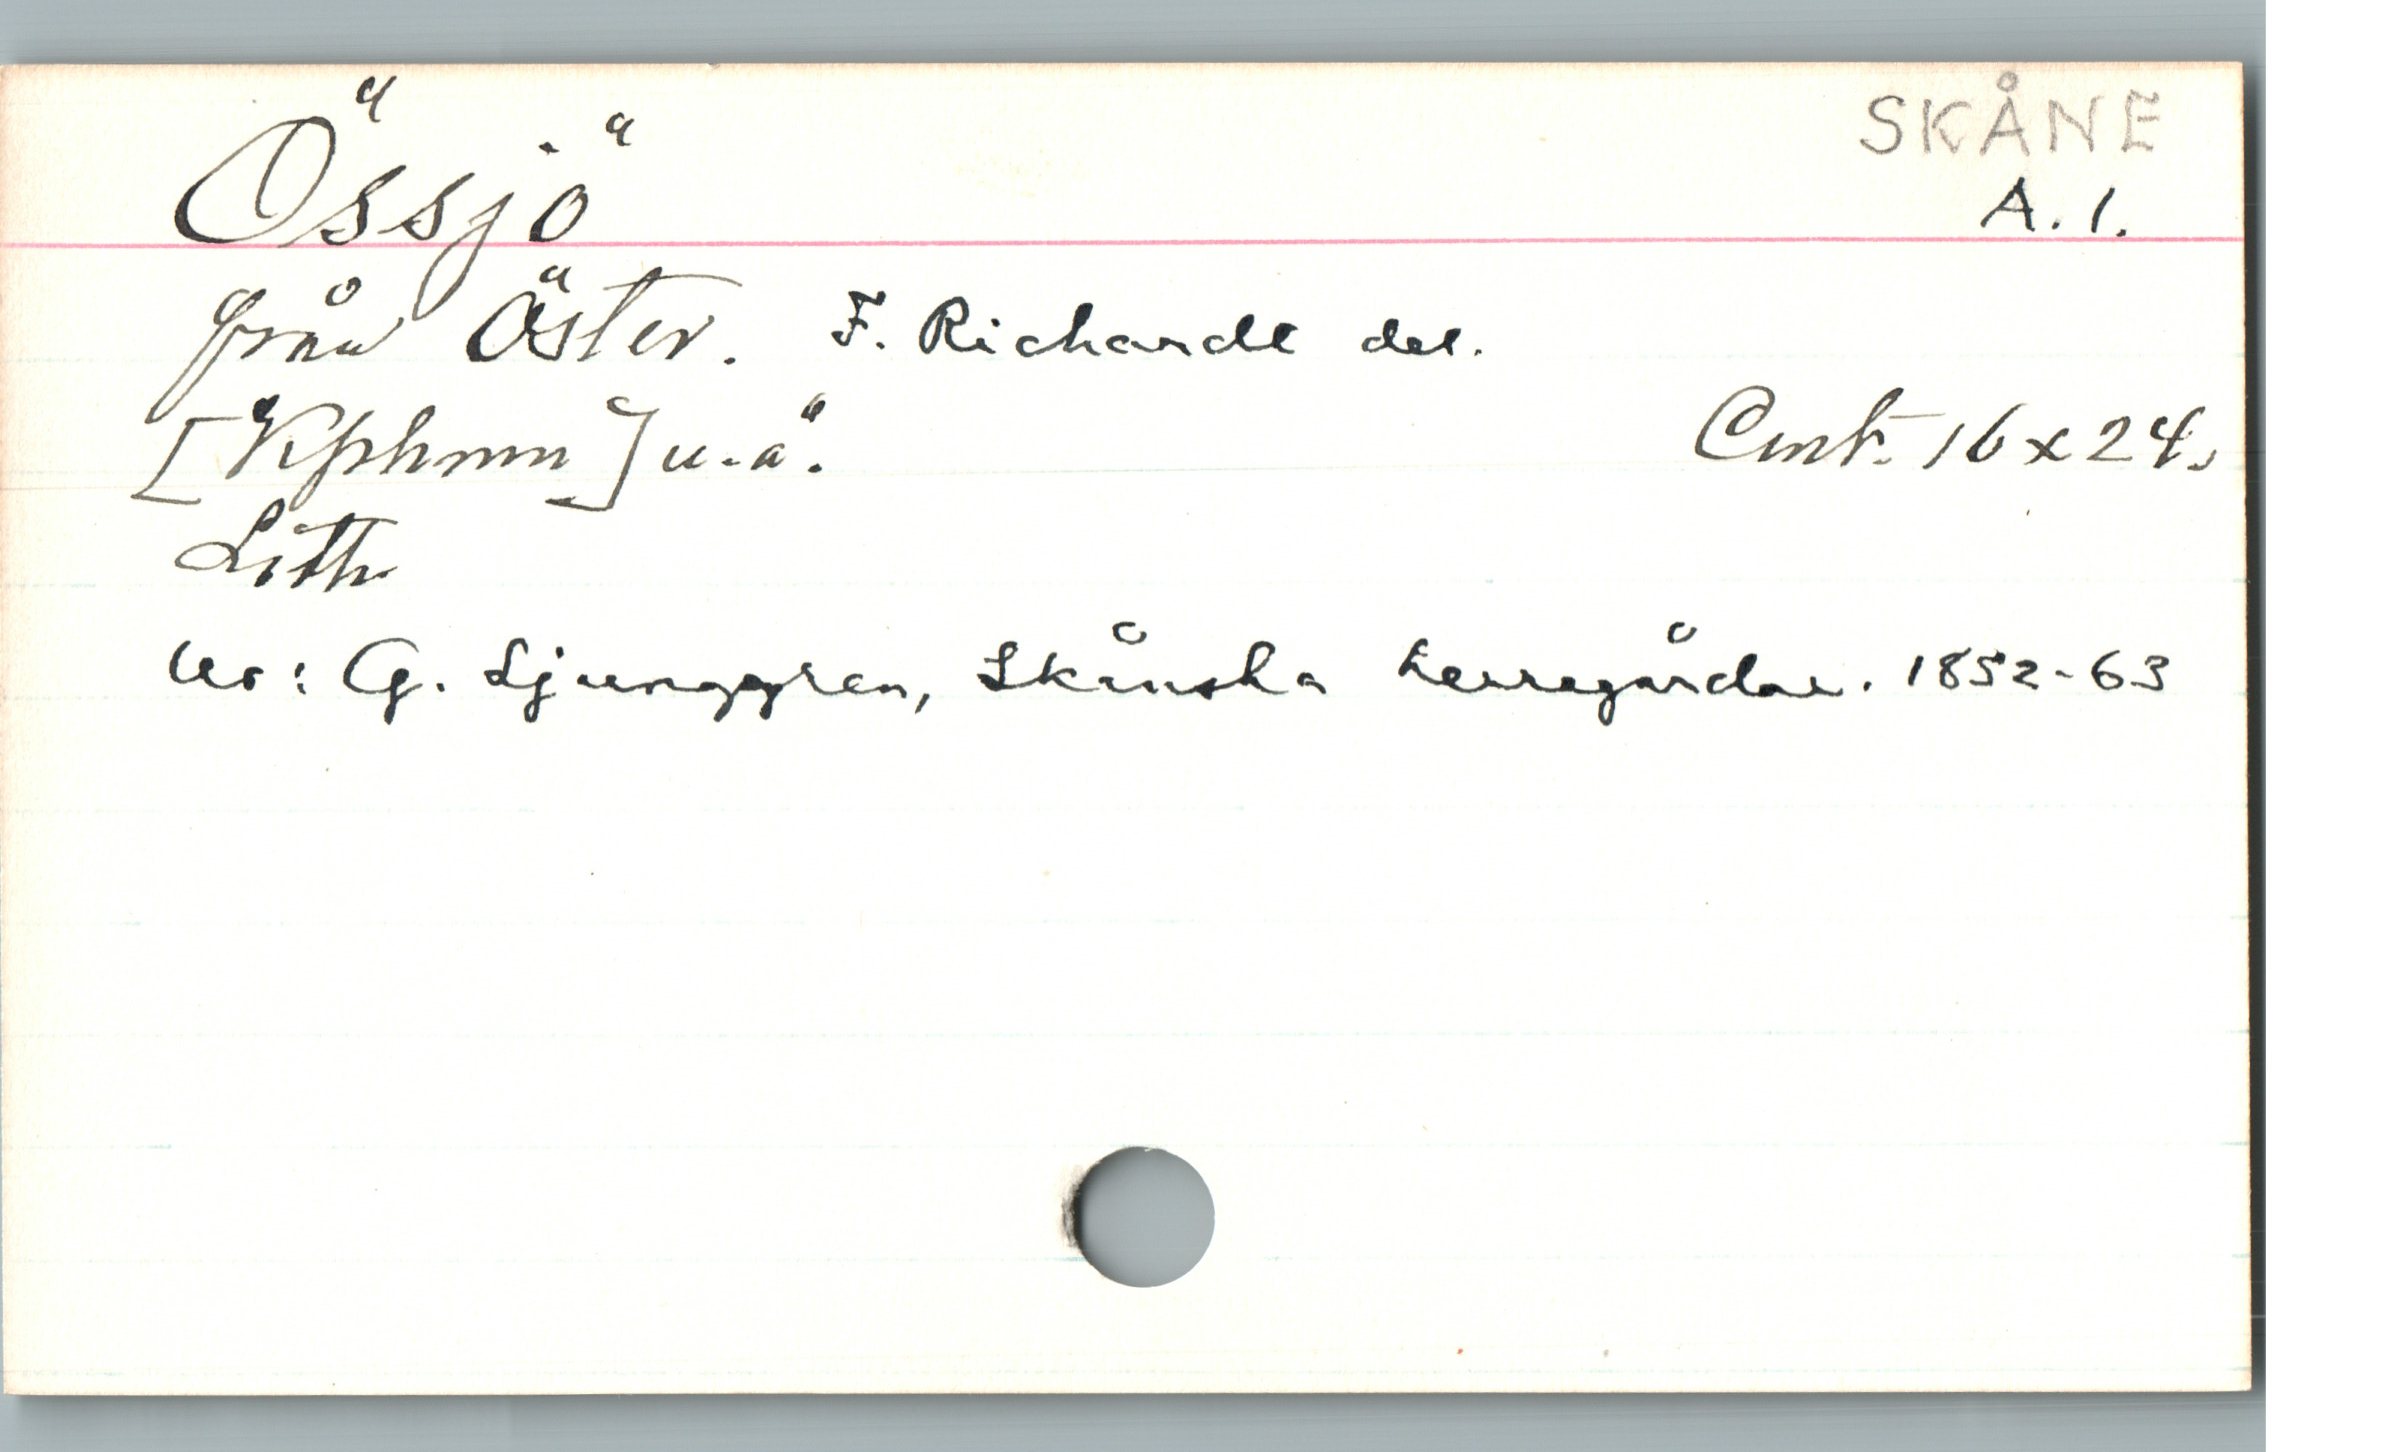 Össjö
SKÅNE
A. 1.
från Öster. F. Richardt del.
[Kphmn] u. å. Cmt. 16 x 24.
Lith
Ur: G. Ljunggren, Skånska herregårdar. 1852-63